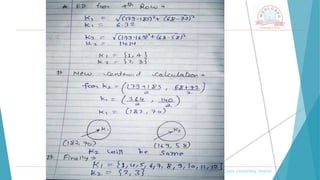 * ED for 4th Row →
K1 = √(179-185)² + (68-72)²
K1 = 6.32
K2 = √(179-169)² + (68-58)²
K2 = 14.14
K1 = {1, 4}
K2 = {2, 3}
# New Centroid Calculation →
for K1 = (179+185 / 2 , 68+72 / 2)
K1 = (364 / 2 , 140 / 2)
K1 = (182, 70)
K1
K2
(182, 70)
(169, 58)
K2 will be Same
# Finally →
K1 = {1, 4, 5, 6, 7, 8, 9, 10, 11, 12}
K2 = {2, 3}